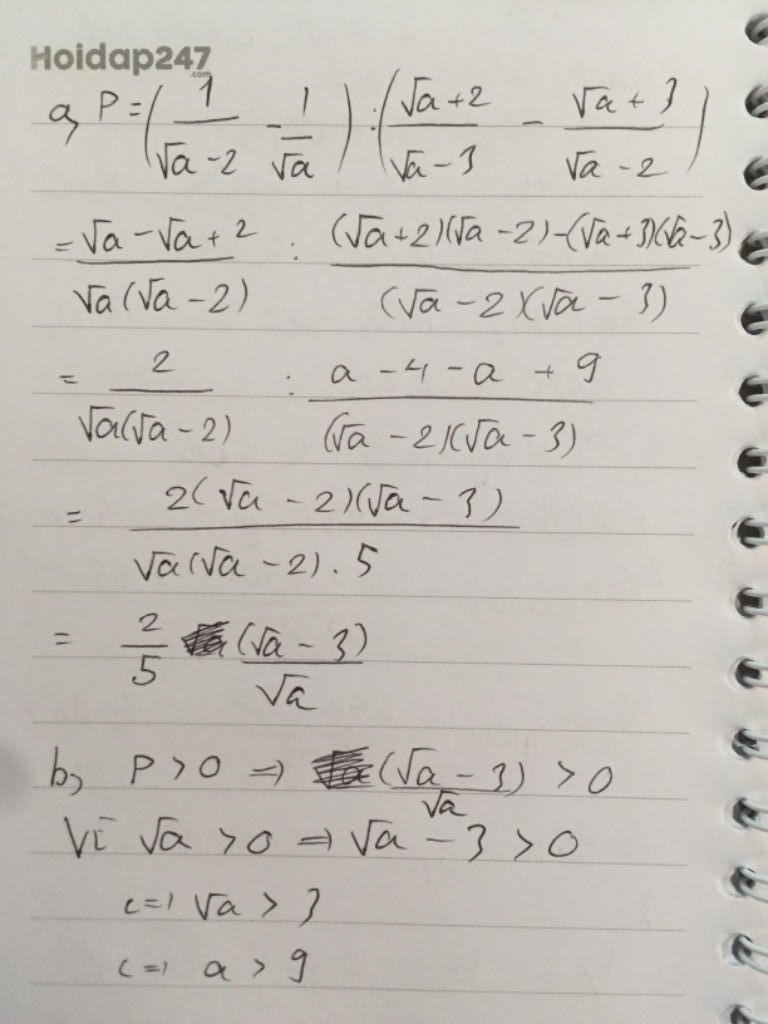 Hoidap247
.com
a, P = (1/(√a - 2) - 1/√a) : ((√a + 2)/(√a - 3) - (√a + 3)/(√a - 2))
= (√a - √a + 2)/(√a(√a - 2)) : ((√a + 2)(√a - 2) - (√a + 3)(√a - 3))/((√a - 2)(√a - 3))
= 2/(√a(√a - 2)) : (a - 4 - a + 9)/((√a - 2)(√a - 3))
= 2(√a - 2)(√a - 3)/(√a(√a - 2) . 5)
= 2/5 (√a - 3)/√a
b, P > 0 => (√a - 3)/√a > 0
Vì √a > 0 => √a - 3 > 0
<=> √a > 3
<=> a > 9